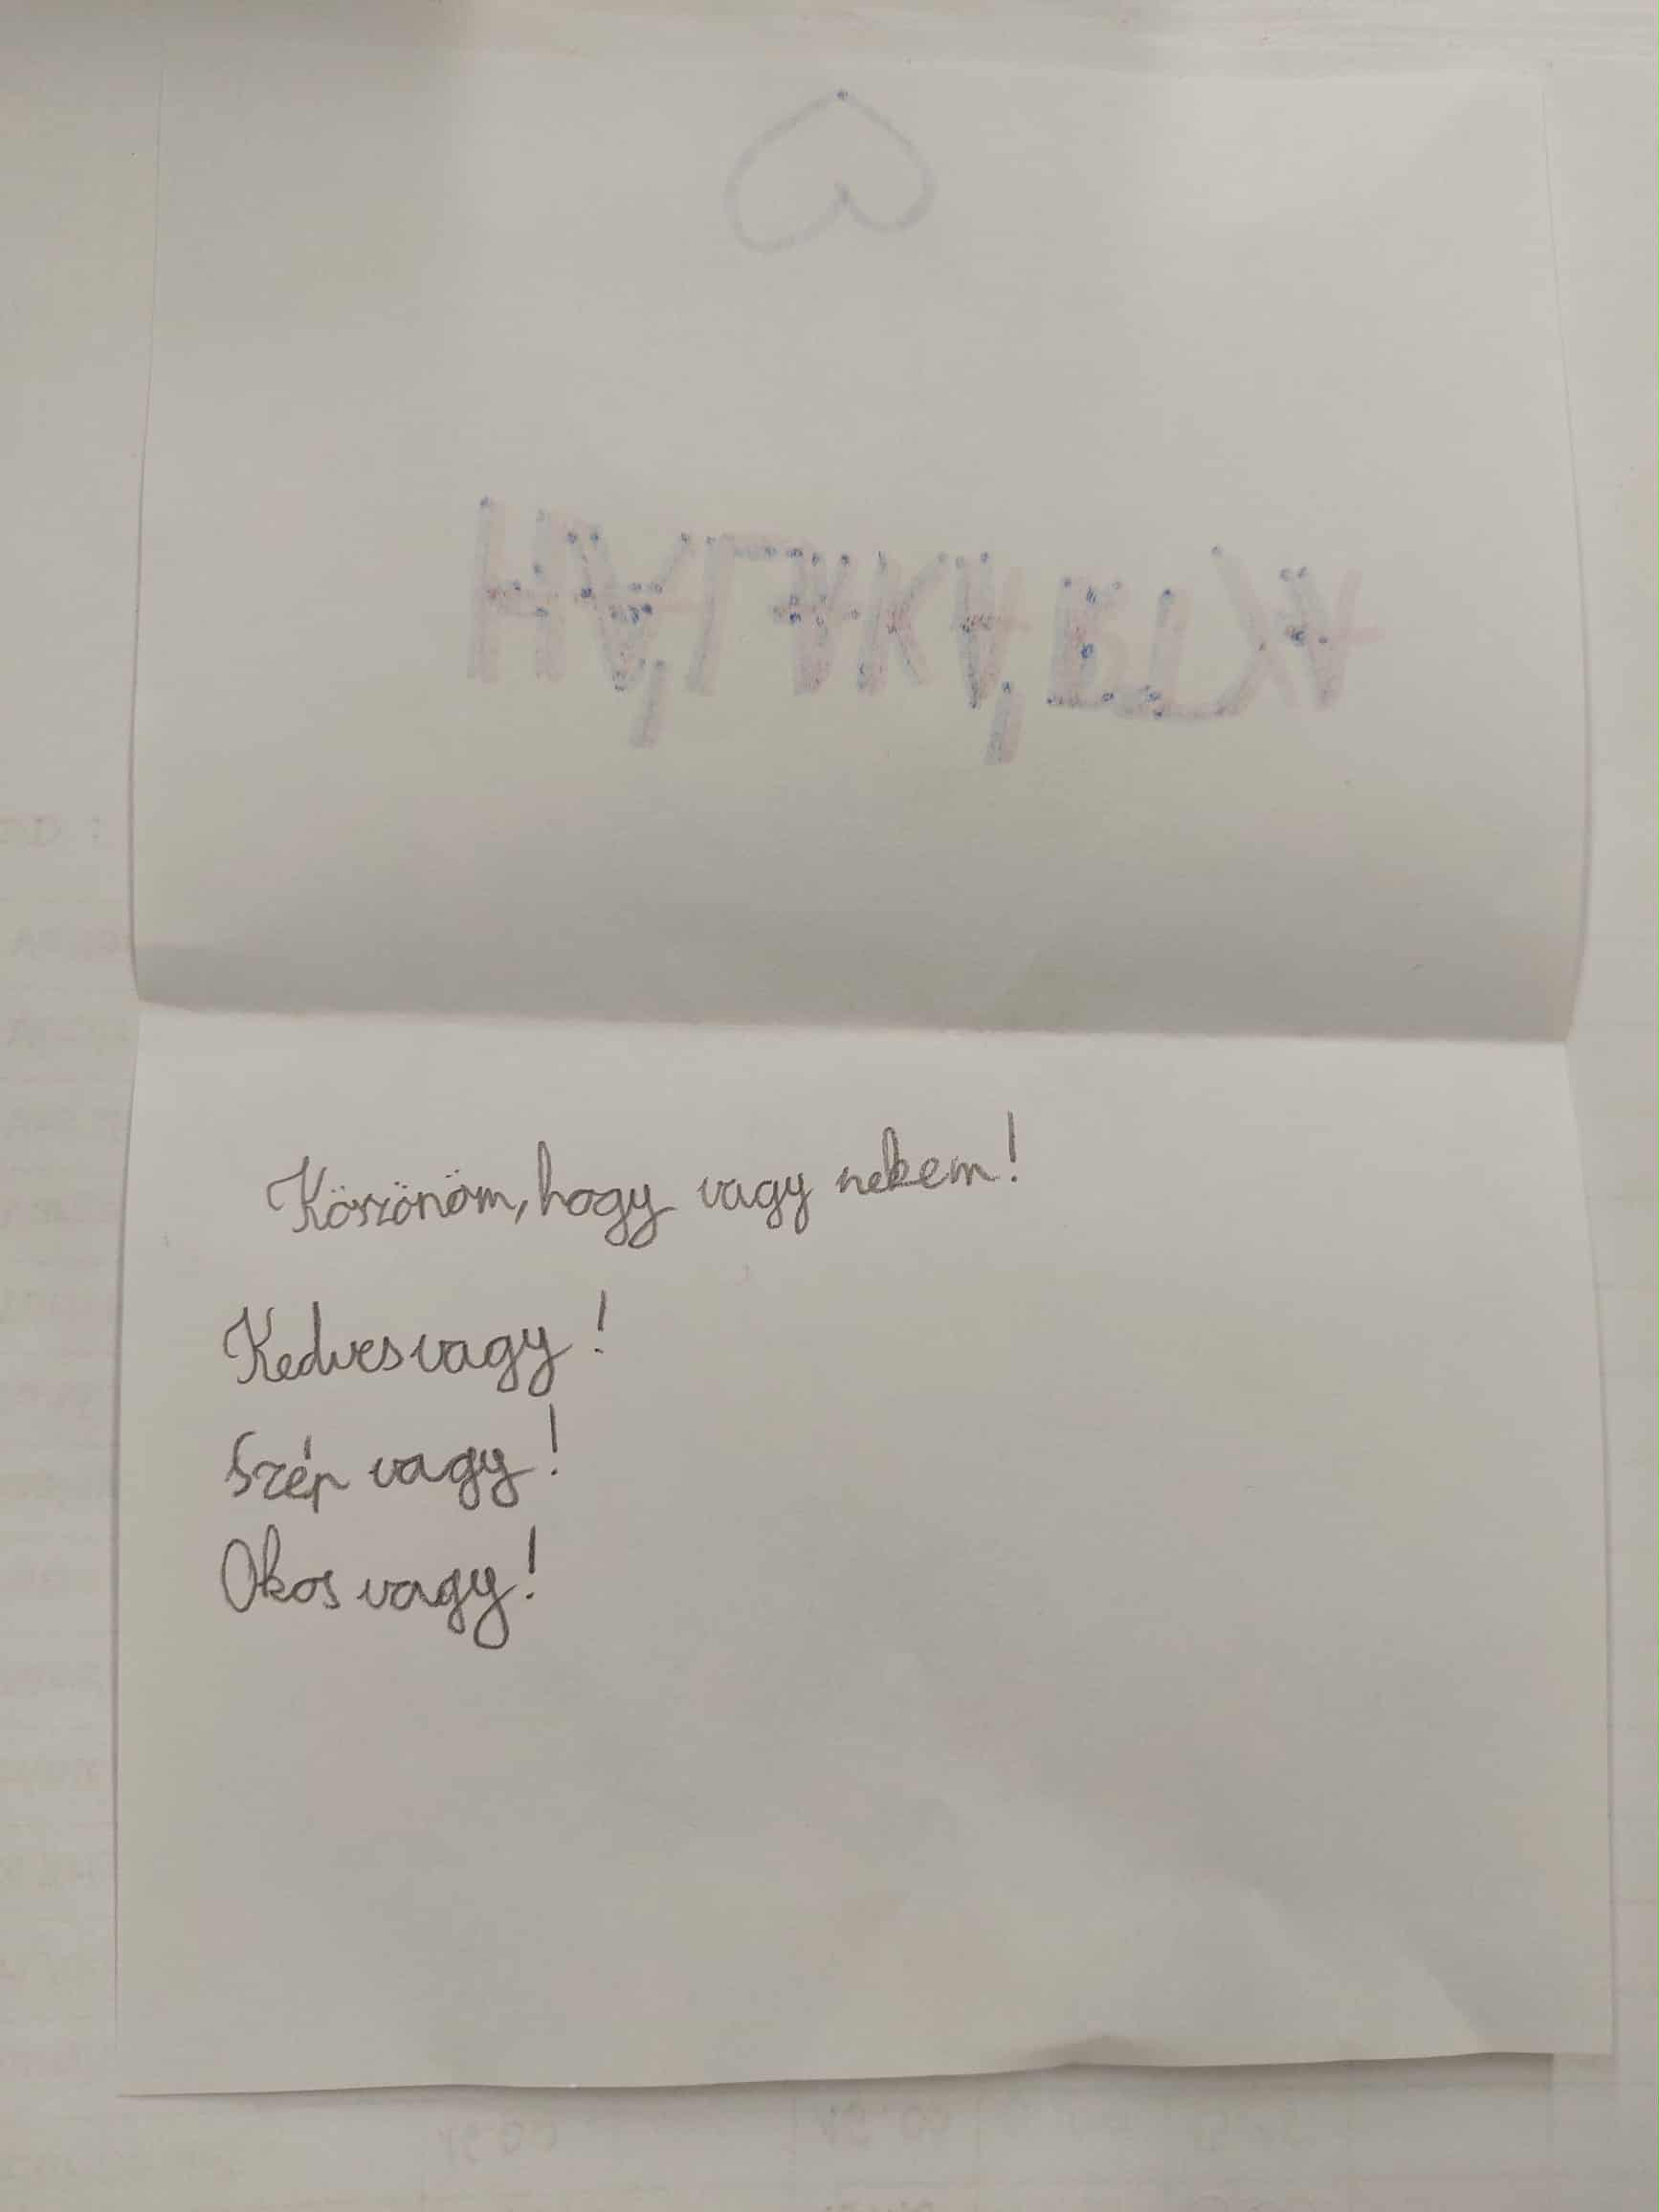 Köszönöm, hogy vagy nekem!
Kedves vagy!
Szép vagy!
Okos vagy!